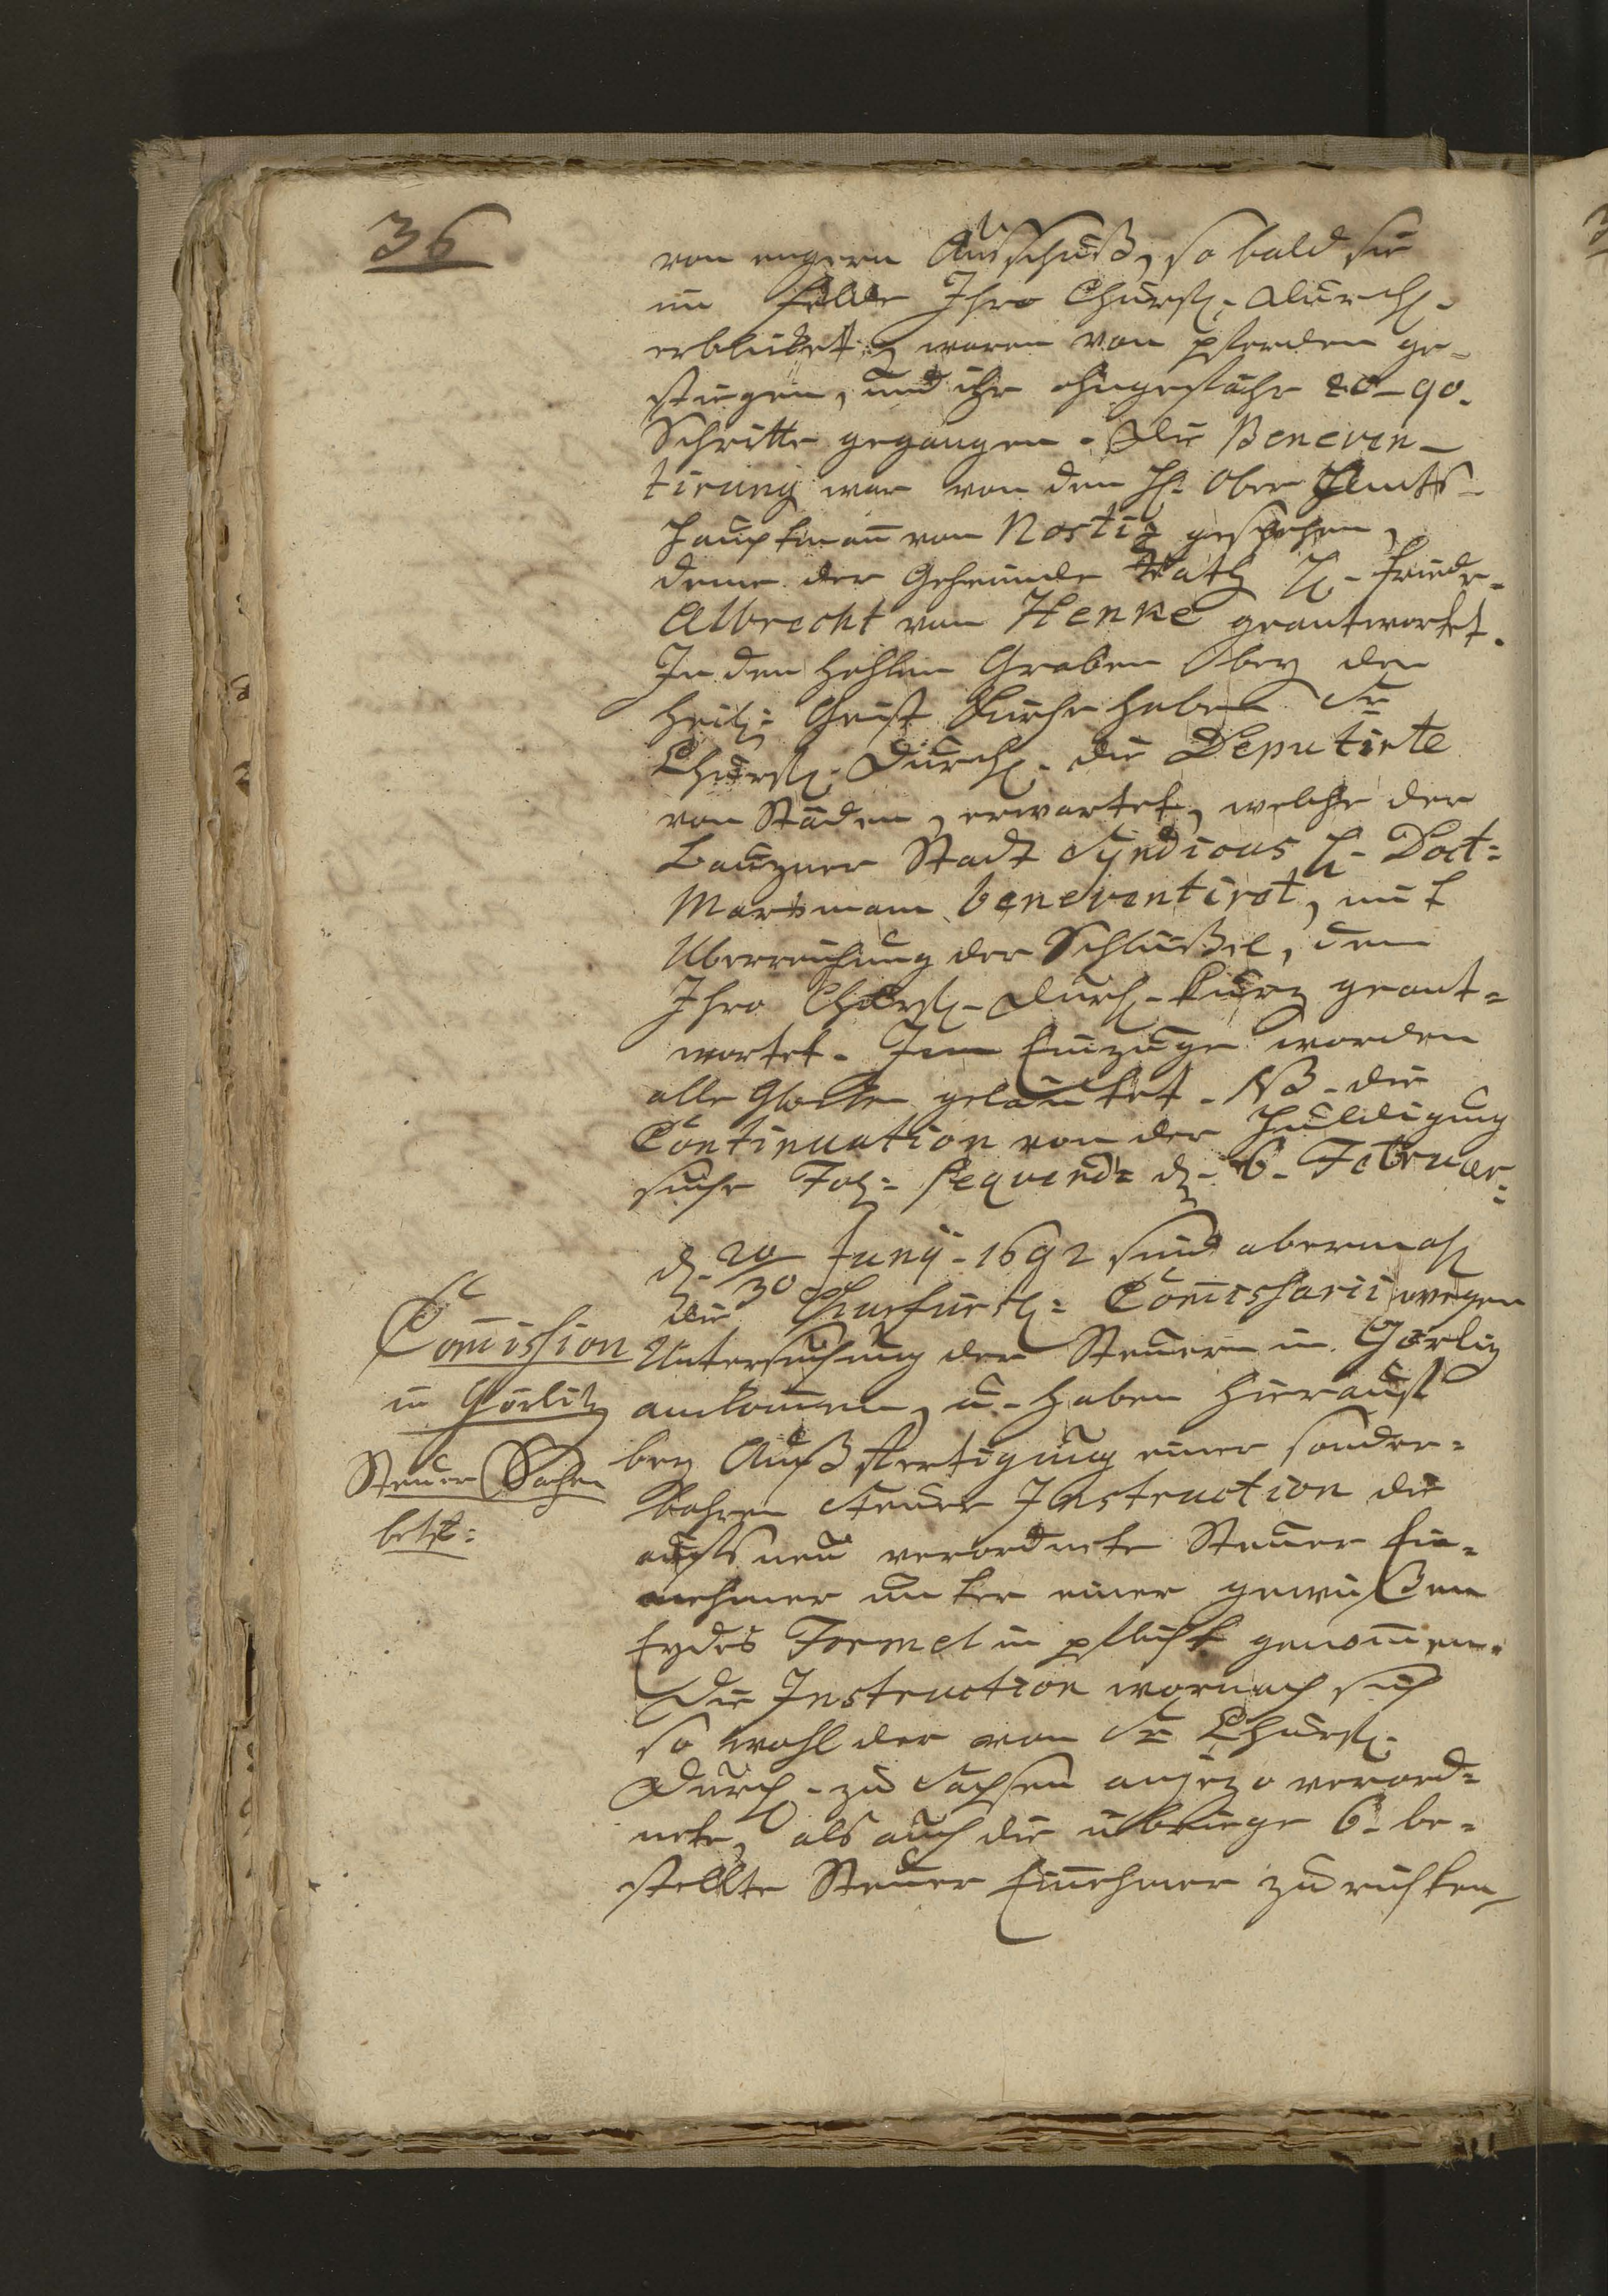 36
von engern Ausschuß, so bald sie
im Felde Ihro Churfl. Durchl.
erblicket, waren von pferden ge=
stiegen, und ihr ohngefähr 80-90.
Schritte gegangen. Die Beneven-
tirung war von dem H. Ober Amts-
Hauptmañ von Nostiz geschehen,
deme der Geheimde Rath H. Friedr.
Albrecht von Henke geantwortet.
In den hohlen Graben bey der
heil: Geist Kirche haben Sr
Churfl. Durchl. die Deputirte
von Städen, erwartet, welche der
Bauzner Stadt Syndicus H. Doct=
Marsmam beneventiret, mit
Uberreichung der Schlüßel, dem
Ihro Churfl. Durchl. kurz geant=
wortet. Im Einzuge worden
alle Glocken geläutet. NB. die
Continuation von der Huldigung
siehe Fol= sequend= d. 6. Februar.
d. 20/30 Junij. 1692 sind abermahl
die Churfürstl= Com̃issarii wegen
Com̃ission
in Görlitz
Steuer Sachen
betr:
Untersuchung der Steuern in Görliz
ankom̃en, u. haben hierauf
bey Außfertigung einer sonder=
bahren Steuer Instruction die
aufs neu verordnete Steuer Ein=
nehmer unter einer gewißen
Eydes Formel in pflicht genom̃en.
Die Instruction wornach sich
so wohl der von Sr Churfl.
Durchl. zu Sachsen anjezo verord=
nete, als auch die übrige 6. be=
stellte Steuer Einnehmer zu richten